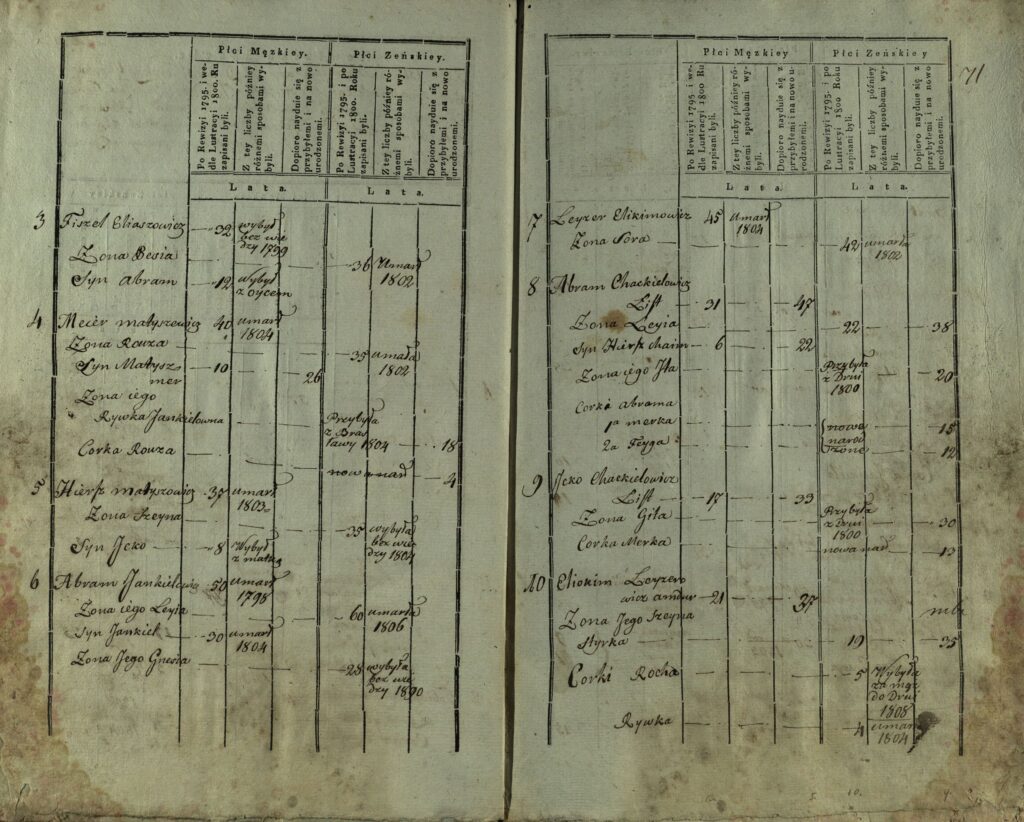 Płci Męzkiey. Płci Zeńskiey.
Po Rewizyi 1795. i we-
dle Lustracyi 1800. Ru
zapisani byli.
Z tey liczby późniey
różnemi sposobami wy-
byli.
Dopioro nayduie się z
przybyłemi i na nowo
urodzonemi.
Po Rewizyi 1795. i po
Lustracyi 1800. Roku
zapisani byli.
Z tey liczby późniey ró-
żnemi sposobami wy-
byli.
Dopioro nayduie się z
przybyłemi i na nowo
urodzonemi.
Lata. Lata.
3 Fiszel Eliaszowicz 32 wybył
bez wie
dzy 1799
Zona Besia 36 Umarł
1802
Syn Abram 12 wybył
z oycem
4 Meier Matyszewicz 40 umarł
1804
Zona Rouza 35 umarła
1802
Syn Matysz 10
mer 26
Zona iego
Rywka Jankielowna Przybyła
z Bras
ławy 1804 18
Corka Rouza 4
5 Hiersz Matyszowicz 37 umarł
1803
Zona Szeyna 35 wybyła
bez wie
dzy 1804
Syn Jcko 8 Wybył
z matką
6 Abram Jankielowicz 50 umarł
1798
Zona iego Leyia 60 umarła
1806
Syn Jankiel 30 umarł
1804
Zona Jego Gnesia 28 wybyła
bez wie
dzy 1800
71
Płci Męzkiey Płci Zeńskiey
Po Rewizyi 1795. i we-
dle Lustracyi 1800 Ru
zapisani byli.
Z tey liczby późniey ró-
żnemi sposobami wy-
byli.
Dopioro nayduie się z
przybyłemi i na nowo u-
rodzonemi.
Po Rewizyi 1795. i po
Lustracyi 1800. Roku
zapisani byli.
Z tey liczby późniey
różnemi sposobami wy-
byli.
Dopioro nayduie się z
przybyłemi i na nowo
urodzonemi.
Lata. Lata.
7 Leyzer Elikimowicz 45 umarł
1804
Zona Sora 42 umarła
1802
8 Abram Chackielowicz
Lift 31 47
Zona Leyia 22 38
Syn Hiersz Chaim 6 22
Zona iego Jta Przybyła
z Drui
1800 20
Corki Abrama
1a Merka nowo 15
2a Feyga naro
dzone 12
9 Jcko Chackielowicz
Lift 17 33
Zona Gita Przybyła
z Drui
1800 30
Corka Merka nowo nar 13
10 Eliokim Leyzero
wicz 21 37
Zona Jego Szeyna
Styrka 19 35
Corki Rocha 5 Wybyła
za mąż
do Drui
1808
Rywka 4 umarł
1804